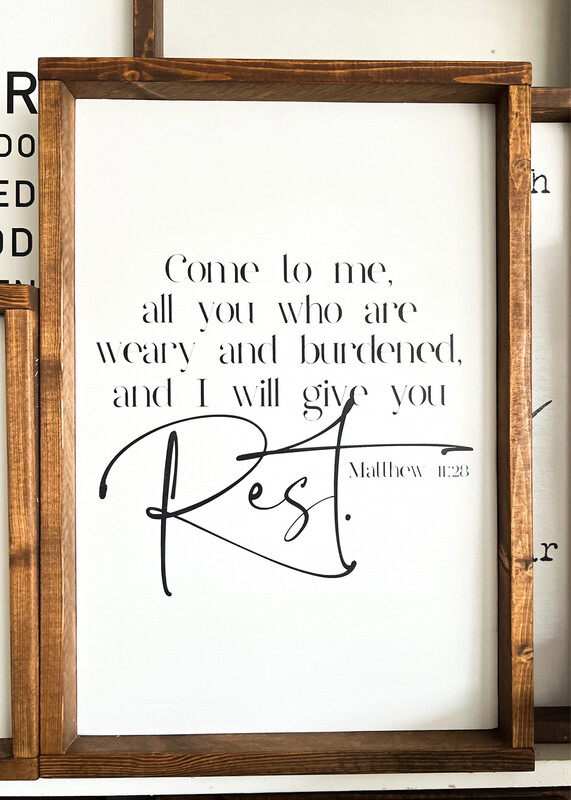 Come to me,
all you who are
weary and burdened,
and I will give you
Rest.
Matthew 11:28
R
DO
ED
OD
EN
h
ar